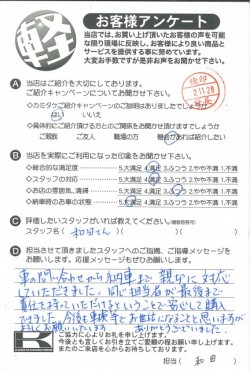 軽
お客様アンケート
当店では、お買い上げ頂いたお客様の声を可能
な限り現場に反映し、お客様により良い商品と
サービスを提供する事に努めております。
大変お手数ですが是非お声をお聞かせ下さい。
検印
A 当店はご紹介を大切にしております。
ご紹介キャンペーンについてお聞かせ下さい。
はい いいえ
B 当店を実際にご利用になった印象をお聞かせ下さい。
◇総合的な満足度 5.大満足 4.満足 3.ふつう 2.やや不満 1.不満
◇スタッフの対応 5.大満足 4.満足 3.ふつう 2.やや不満 1.不満
◇お店の雰囲気、清掃 5.大満足 4.満足 3.ふつう 2.やや不満 1.不満
◇納車時のお車の状態 5.大満足 4.満足 3.ふつう 2.やや不満 1.不満
C 評価したいスタッフがいれば教えてください。(複数回答可)
スタッフ名( 和田さん )
D 担当させて頂きましたスタッフへのご指摘、ご指導メッセージを
お願いします。応援メッセージもぜひお願いします。
車の問い合わせから納車まで親切に対応
していただきました。同じ担当者が最後まで
責任をもっていただけるということで安心して購入
できました。今後も車検等でお世話になることと思いますが
よろしくお願いいたします。ありがとうございました。
ご協力に心よりお礼を申し上げます。
今後とも宜しくお引き立てご愛顧の程お願い申し上げます。
またのご来店を心からお待ちしております。
担当( 和田 )